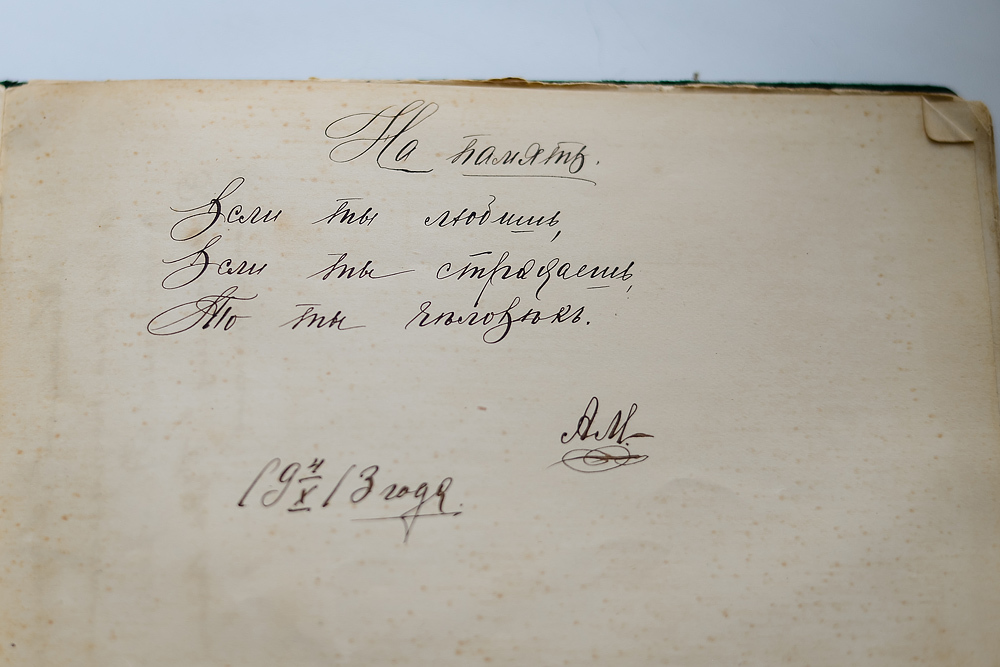 На память.
Если ты любишь,
Если ты страдаешь,
То ты человѣкъ.
А.М.
19 4/X 13 года.